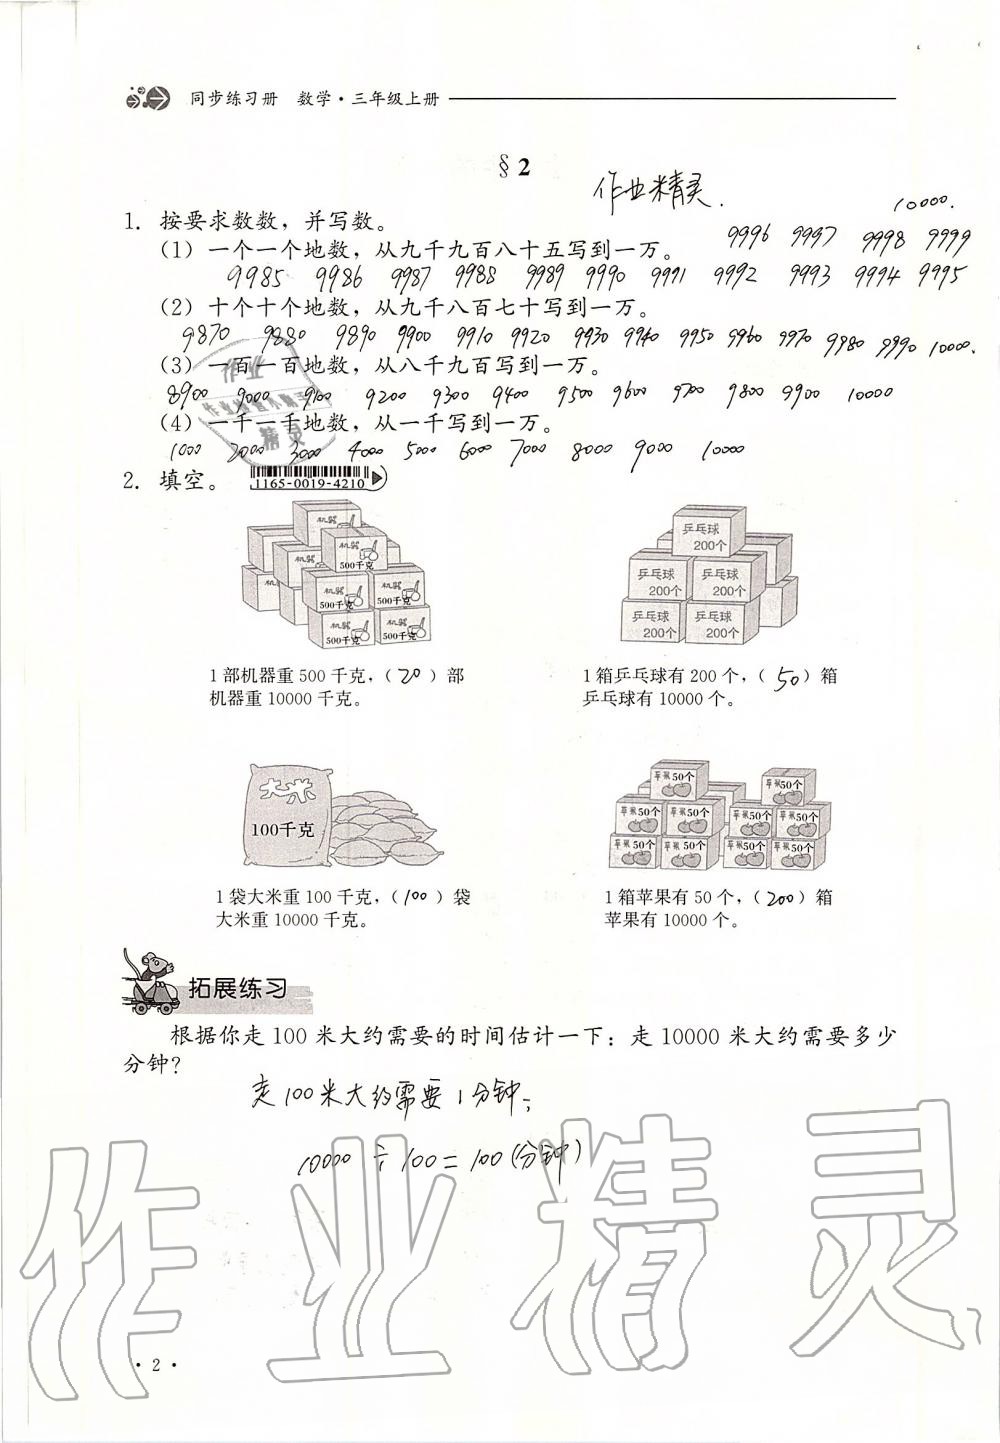 同步练习册 数学·三年级上册
§2
作业精灵.
1. 按要求数数，并写数。
10000.
(1) 一个一个地数，从九千九百八十五写到一万。
9996 9997 9998 9999
9985 9986 9987 9988 9989 9990 9991 9992 9993 9994 9995
(2) 十个十个地数，从九千八百七十写到一万。
9870 9880 9890 9900 9910 9920 9930 9940 9950 9960 9970 9980 9990 10000.
(3) 一百一百地数，从八千九百写到一万。
8900 9000 9100 9200 9300 9400 9500 9600 9700 9800 9900 10000
(4) 一千一千地数，从一千写到一万。
1000 2000 3000 4000 5000 6000 7000 8000 9000 10000
作业
精灵
2. 填空。
1165-0019-4210
机器
机器
500千克
机器 机器
500千克 500千克
机器
500千克 500千克
1部机器重500千克，(20)部
机器重10000千克。
乒乓球
200个
乒乓球 乒乓球
200个 200个
乒乓球 乒乓球
200个 200个
1箱乒乓球有200个，(50)箱
乒乓球有10000个。
大米
100千克
1袋大米重100千克，(100)袋
大米重10000千克。
苹果50个 苹果50个
苹果50个 苹果50个 苹果50个 苹果50个
苹果50个 苹果50个 苹果50个 苹果50个
1箱苹果有50个，(200)箱
苹果有10000个。
拓展练习
根据你走100米大约需要的时间估计一下：走10000米大约需要多少
分钟？
走100米大约需要1分钟；
10000÷100=100(分钟)
作业精灵
·2·